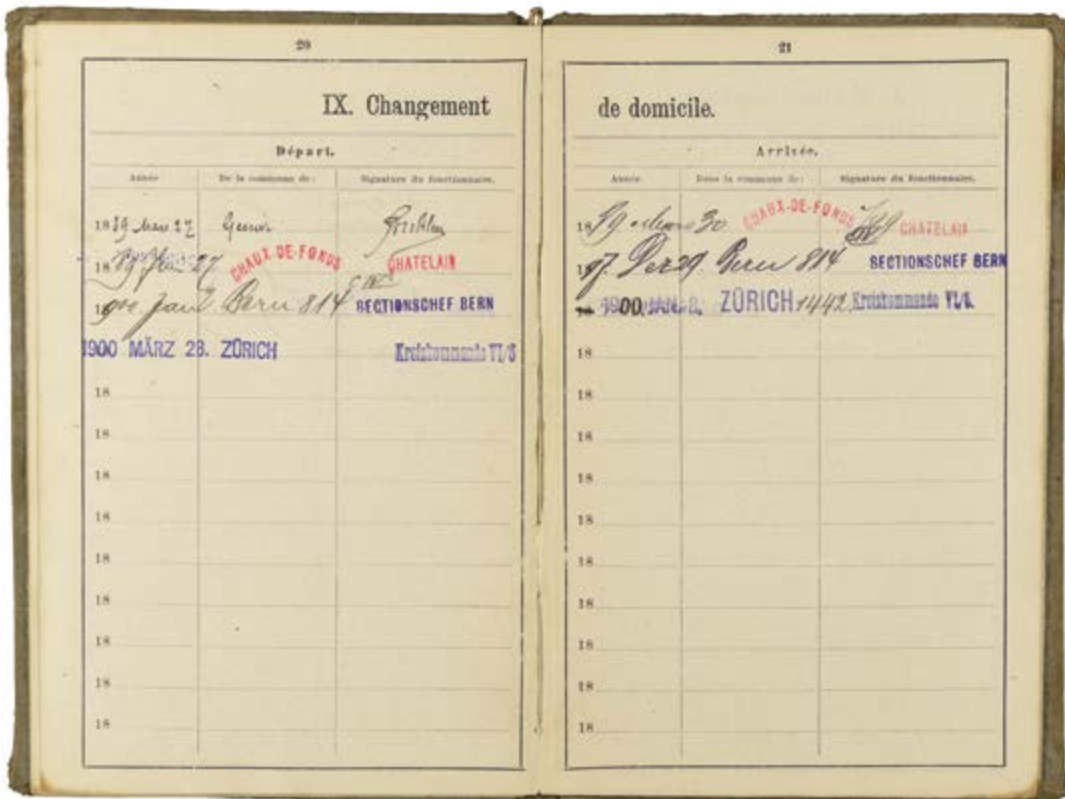 20
IX. Changement
Départ.
Année De la commune de: Signature du fonctionnaire.
1889 Mars 27
18 CHAUX-DE-FONDS CHATELAIN
Jan 2 Bern 814 SECTIONSCHEF BERN
1900 MÄRZ 28. ZÜRICH Kreiskommando VI/S
18
18
18
18
18
18
18
18
18
21
de domicile.
Arrivée.
Année Dans la commune de: Signature du fonctionnaire.
1889 Mars 30 CHAUX-DE-FONDS CHATELAIN
97 Dez 29 Bern 814 SECTIONSCHEF BERN
1900 JAN. 8. ZÜRICH 1442 Kreiskommando VI/S.
18
18
18
18
18
18
18
18
18
18